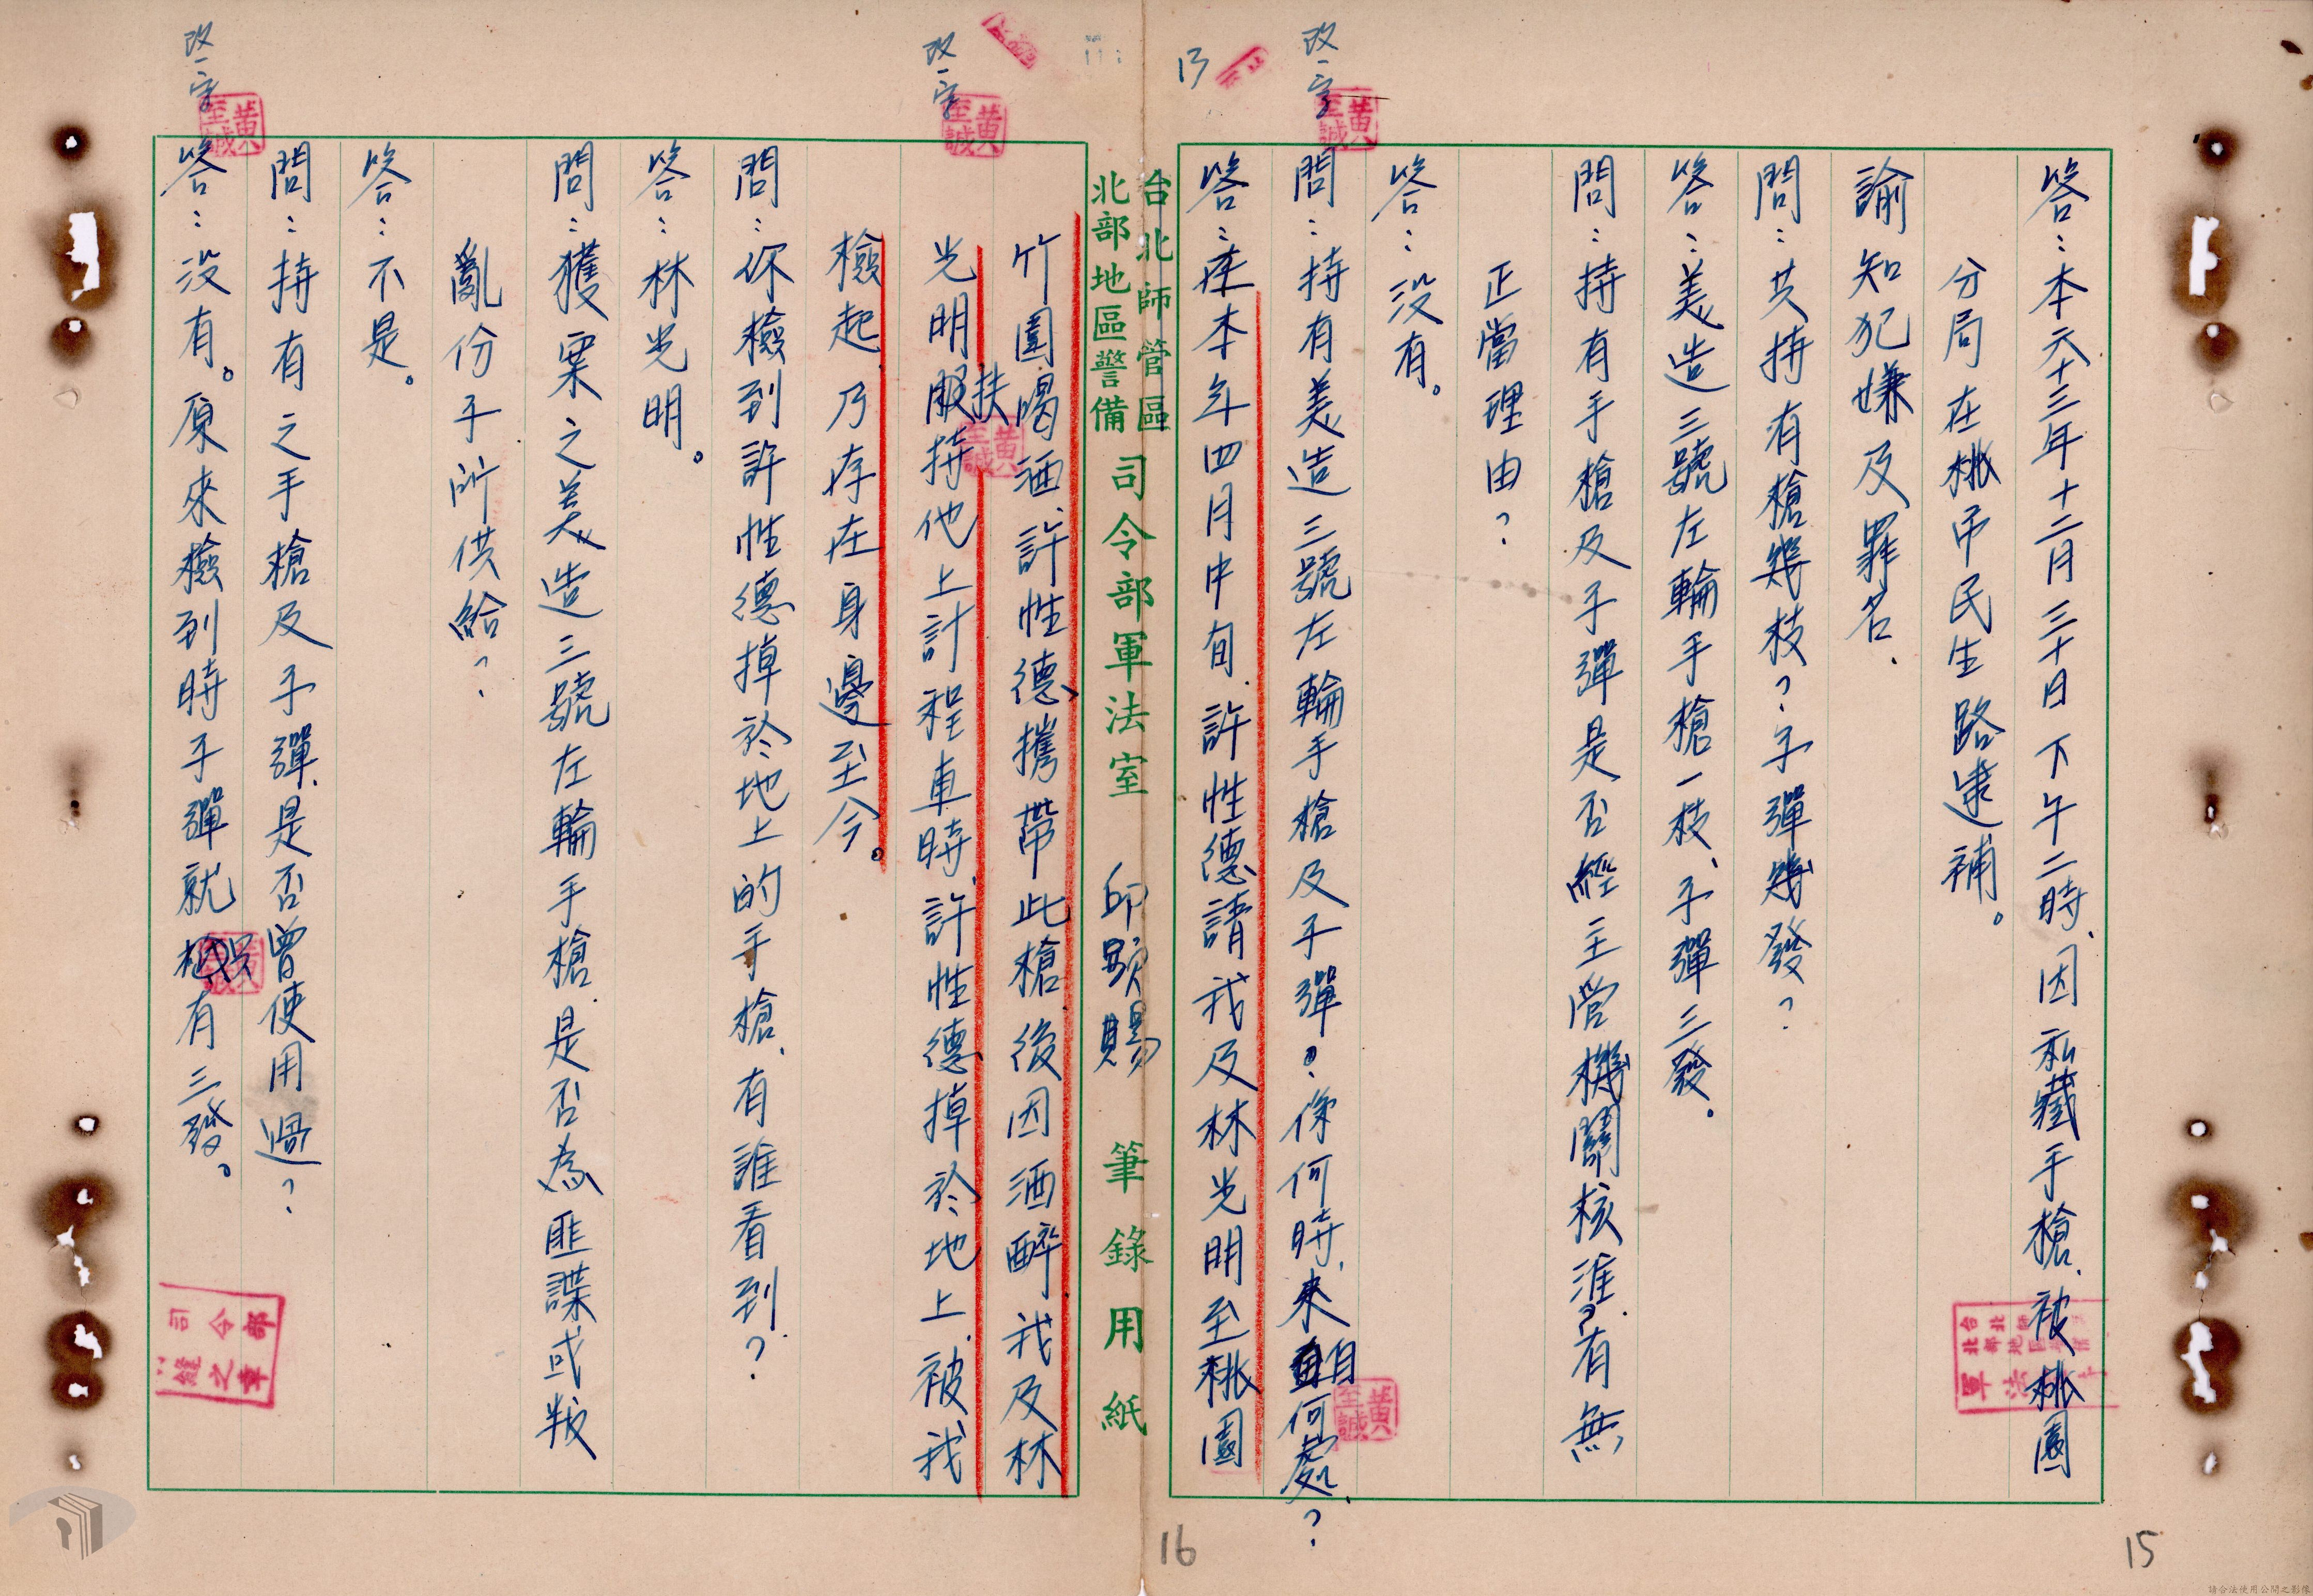 答：本六十三年十二月三十日下午二時、因私藏手槍、被桃園
分局在桃市民生路逮補。
諭知犯嫌及罪名.
問：共持有槍幾枝？子彈幾發？
答：美造三號左輪手槍一枝、子彈三發。
問：持有手槍及子彈是否經主管機關核准？有無
正當理由？
答：没有。
改一字
黄至誠
問：持有美造三號左輪手槍及子彈？係何時、來自何處？
黄至誠
答：在本年四月中旬、許性德請我及林光明至桃園
13
15
台北師管區
北部地區警備
司令部軍法室 邱顯賜 筆錄用紙
16
竹圍喝酒、許性德攜帶此槍、後因酒醉、我及林
改一字
黄至誠
光明扶持他上計程車時、許性德掉於地上、被我
黄至誠
檢起乃存在身邊至今。
問：你檢到許性德掉於地上的手槍、有誰看到？
答：林光明。
問：獲案之美造三號左輪手槍、是否為匪諜或叛
亂份子所供給？
答：不是。
問：持有之手槍及子彈、是否曾使用過？
改一字
黄至誠
答：没有。原來檢到時子彈就只有三發。
司令部
縫之章
請合法使用公開之影像